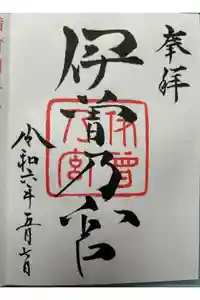 奉拝
伊曽乃宮
伊曽
乃宮
令和六年五月七日